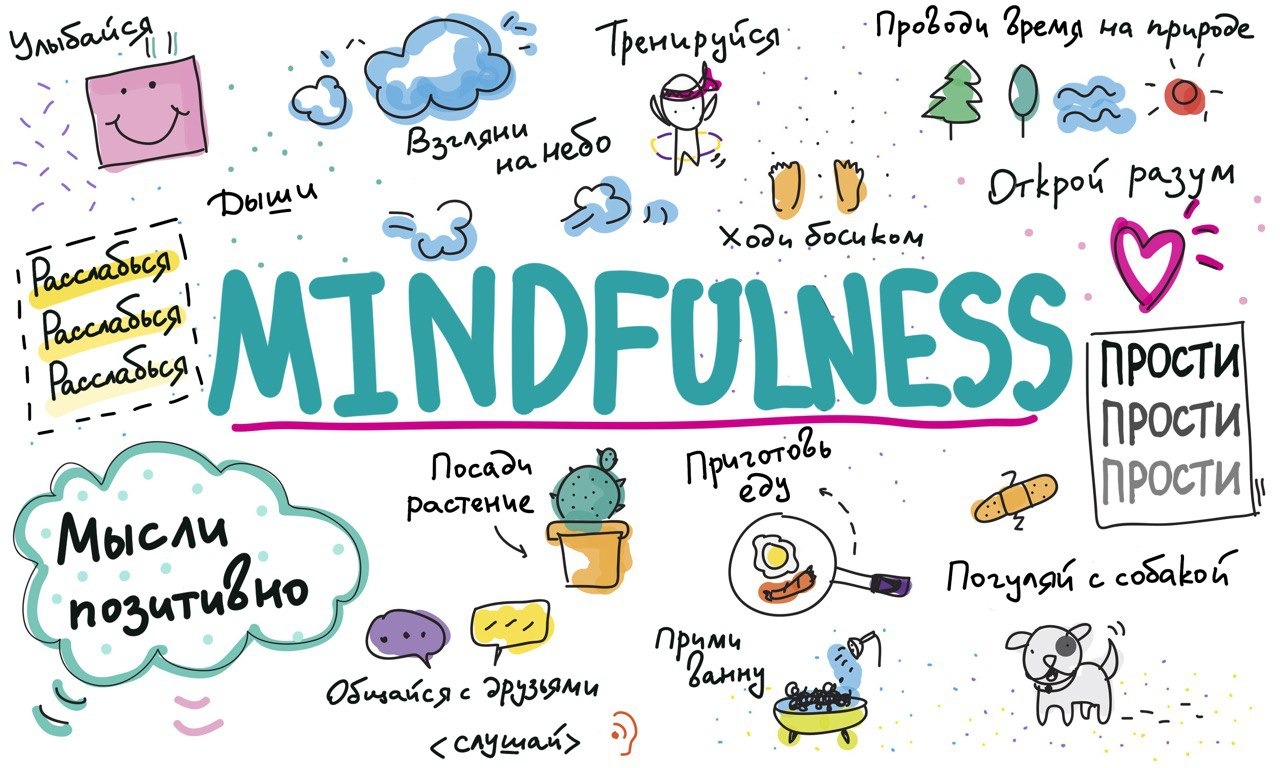 Улыбайся
Взгляни
на небо
Тренируйся
Проводи время на природе
Дыши
Ходи босиком
Открой разум
Расслабься
Расслабься
Расслабься
MINDFULNESS
ПРОСТИ
ПРОСТИ
ПРОСТИ
Мысли
позитивно
Посади
растение
Приготовь
еду
Погуляй с собакой
Общайся с друзьями
<слушай>
Прими
ванну